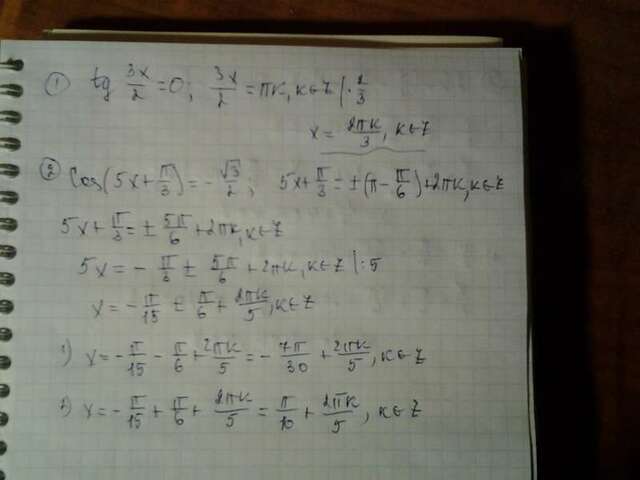 ① tg 3x/2 = 0; 3x/2 = πk, k∈Z |· 2/3
x = 2πk/3, k∈Z
② cos(5x + π/3) = -√3/2; 5x + π/3 = ±(π - π/6) + 2πk, k∈Z
5x + π/3 = ± 5π/6 + 2πk, k∈Z
5x = - π/3 ± 5π/6 + 2πk, k∈Z |: 5
x = - π/15 ± π/6 + 2πk/5, k∈Z
1) x = - π/15 - π/6 + 2πk/5 = - 7π/30 + 2πk/5, k∈Z
2) x = - π/15 + π/6 + 2πk/5 = π/10 + 2πk/5, k∈Z